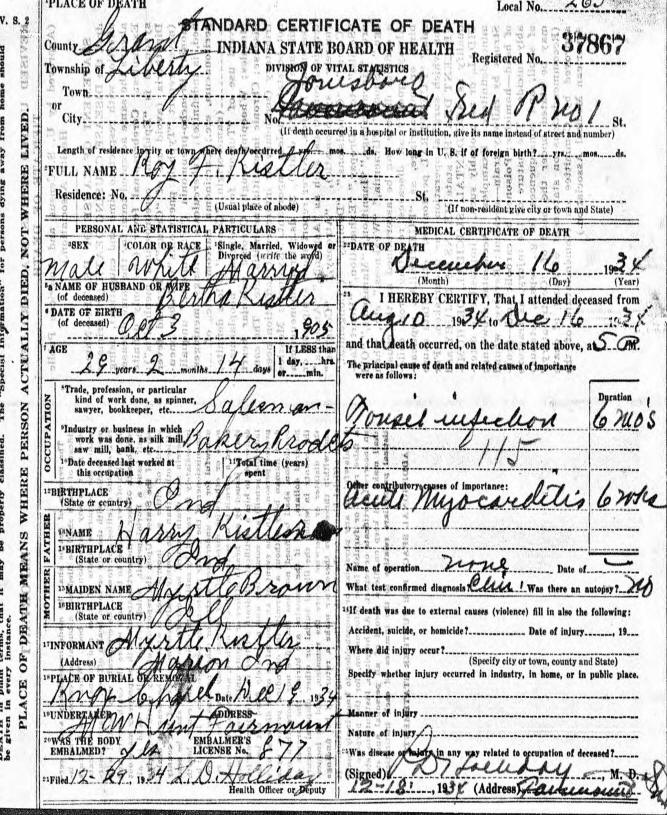 PLACE OF DEATH
Local No.
STANDARD CERTIFICATE OF DEATH
County Grant
INDIANA STATE BOARD OF HEALTH
Registered No. 37867
Township of Liberty
DIVISION OF VITAL STATISTICS
Town
Jonesboro
or
City No. R No 1 St.
(If death occurred in a hospital or institution, give its name instead of street and number)
Length of residence in city or town where death occurred yrs. mos. ds. How long in U. S. if of foreign birth? yrs. mos. ds.
FULL NAME Roy F. Kistler
Residence: No. St.
(Usual place of abode) (If non-resident give city or town and State)
PERSONAL AND STATISTICAL PARTICULARS
SEX COLOR OR RACE Single, Married, Widowed or
Divorced (write the word)
Male White Married
NAME OF HUSBAND OR WIFE
(of deceased) Bertha Kistler
DATE OF BIRTH
(of deceased) Oct 3 1905
AGE If LESS than
29 years 2 months 14 days 1 day, hrs.
or min.
OCCUPATION
Trade, profession, or particular
kind of work done, as spinner,
sawyer, bookkeeper, etc. Salesman
Industry or business in which
work was done, as silk mill,
saw mill, bank, etc. Bakery Prodcts
Date deceased last worked at
this occupation
Total time (years)
spent
BIRTHPLACE
(State or country) Ind
FATHER
NAME Harry Kistler
BIRTHPLACE
(State or country) Ind
MOTHER
MAIDEN NAME Myrtle Brown
BIRTHPLACE
(State or country) Ill
INFORMANT Myrtle Kistler
(Address) Marion Ind
PLACE OF BURIAL OR REMOVAL
Knox Chapel Date Dec 19 1934
UNDERTAKER ADDRESS
Hunt Fairmount
WAS THE BODY
EMBALMED? yes
EMBALMER'S
LICENSE No. 877
Filed 12-29, 1934 L. D. Holliday
Health Officer or Deputy
MEDICAL CERTIFICATE OF DEATH
DATE OF DEATH
December 16 1934
(Month) (Day) (Year)
I HEREBY CERTIFY, That I attended deceased from
Aug 10 1934 to Dec 16 1934
and that death occurred, on the date stated above, at 5 AM.
The principal cause of death and related causes of importance
were as follows:
Duration
Tonsil infection 6 mo's
115
Other contributory causes of importance:
Acute Myocarditis 6 wks
Name of operation none Date of
What test confirmed diagnosis Clin! Was there an autopsy? no
If death was due to external causes (violence) fill in also the following:
Accident, suicide, or homicide? Date of injury , 19
Where did injury occur?
(Specify city or town, county and State)
Specify whether injury occurred in industry, in home, or in public place.
Manner of injury
Nature of injury
Was disease or injury in any way related to occupation of deceased?
(Signed) Holliday M. D.
12-18, 1934 (Address) Fairmount
V. S. 2
PLACE OF DEATH MEANS WHERE PERSON ACTUALLY DIED, NOT WHERE LIVED.
be given in every instance.